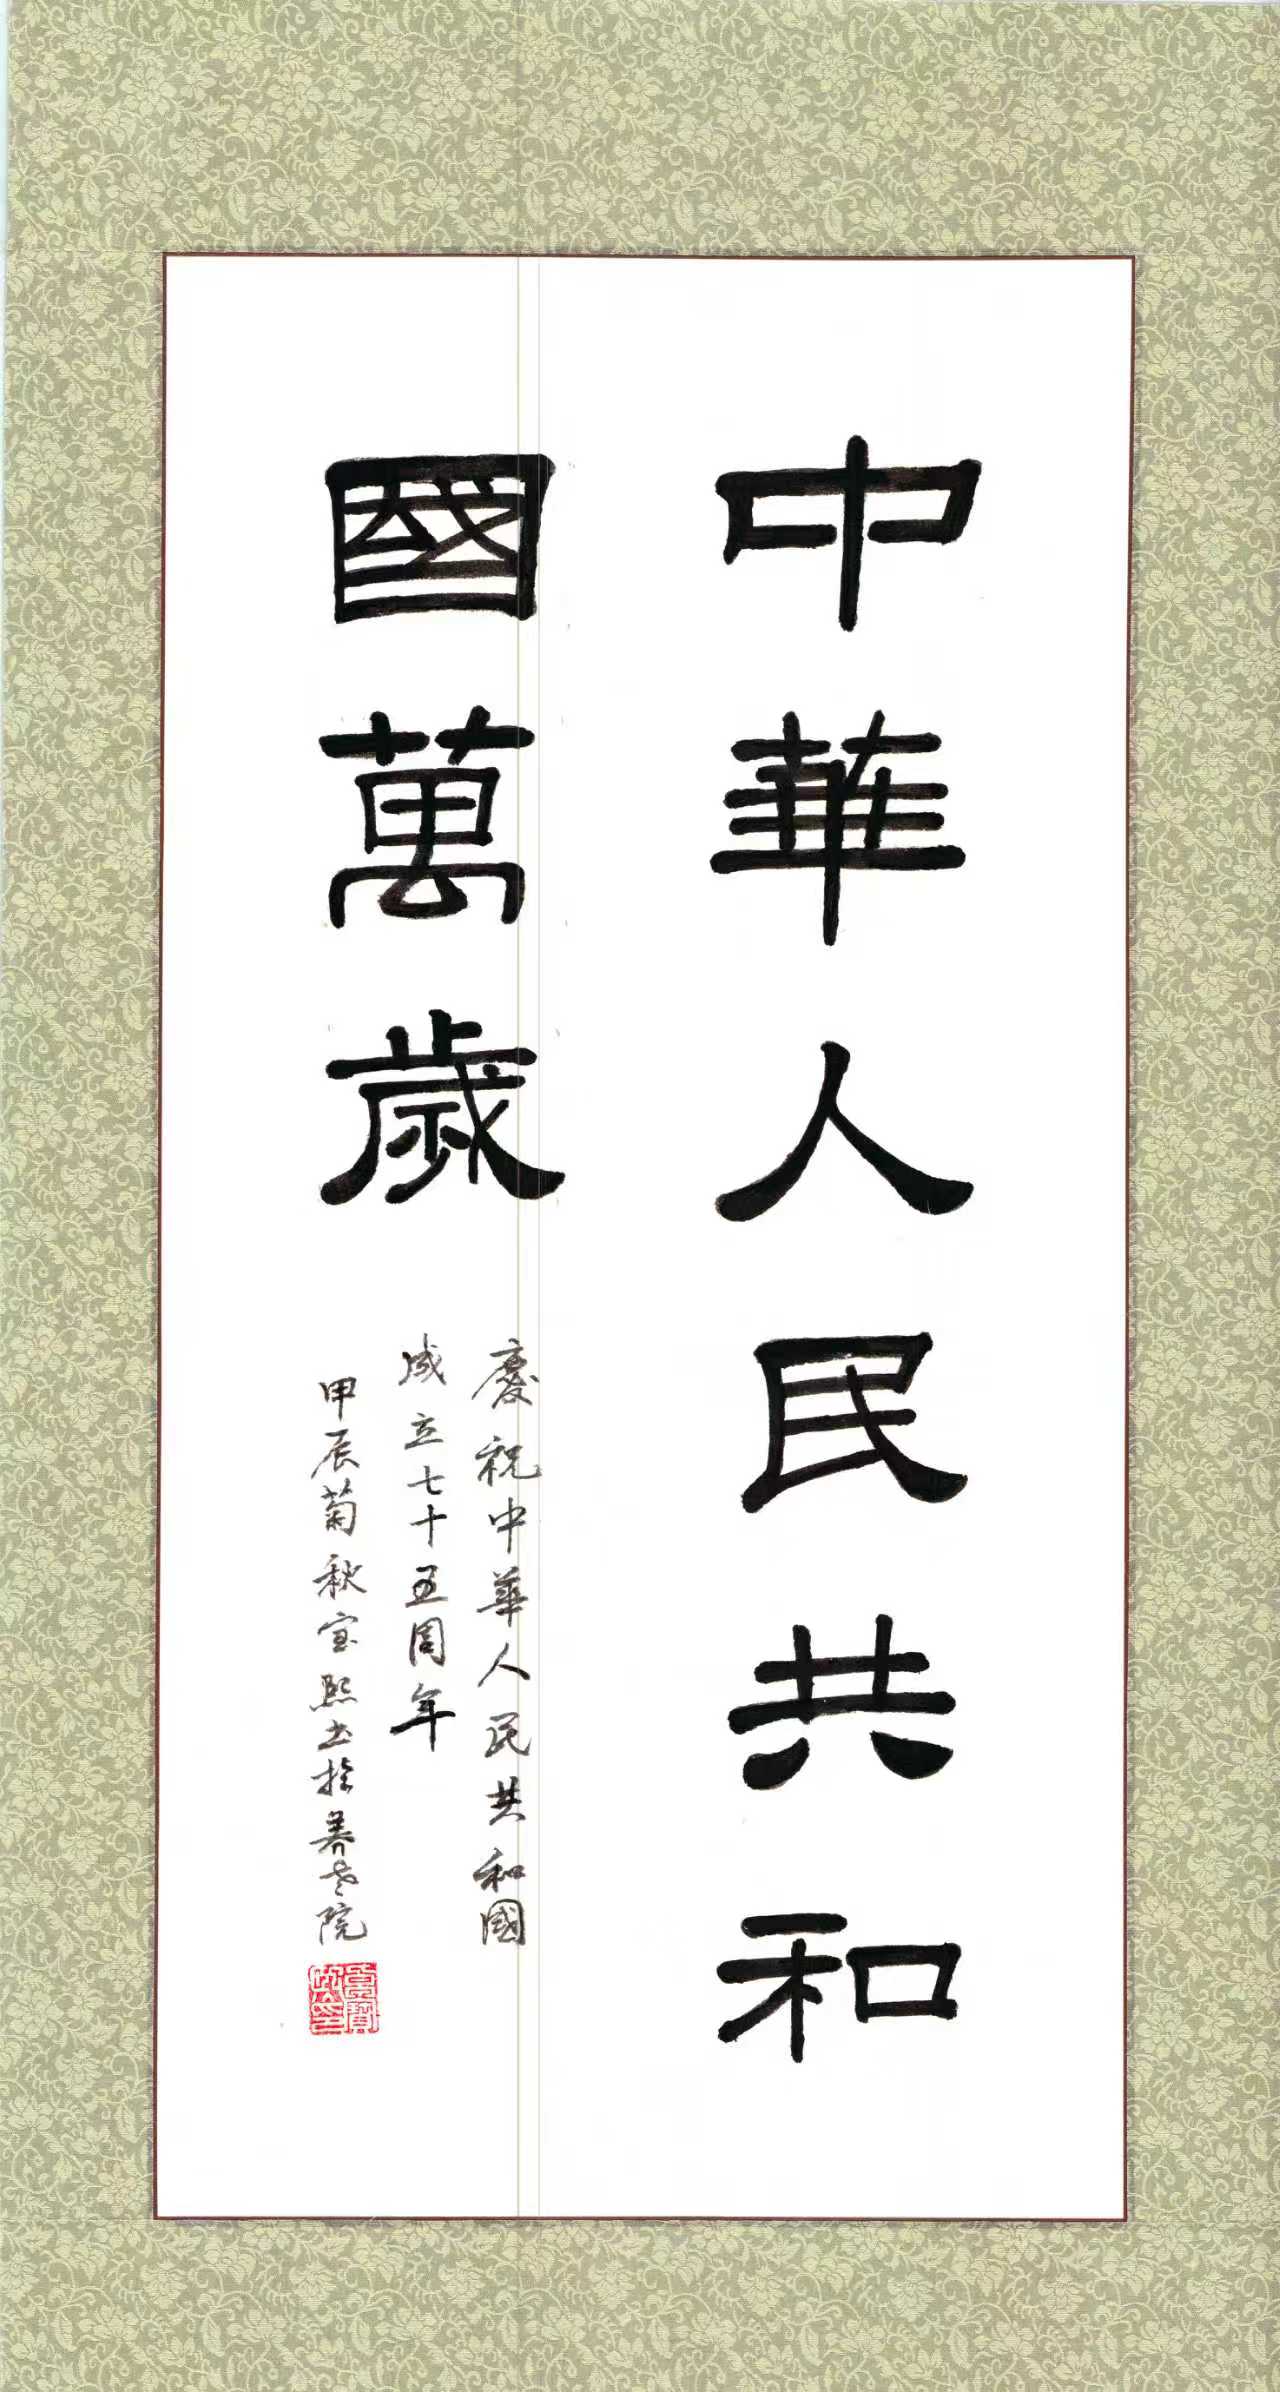 中華人民共和
國萬歲
慶祝中華人民共和國
成立七十五周年
甲辰菊秋宜熙书於養老院